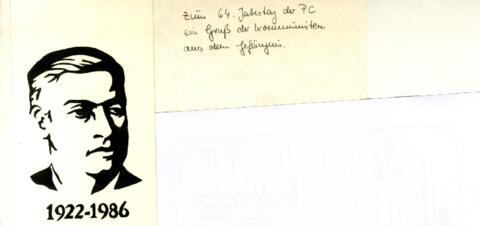 Zum 64. Jahestag der PC
ein Gruß der Kommunisten
aus dem Gefängnis.
1922-1986